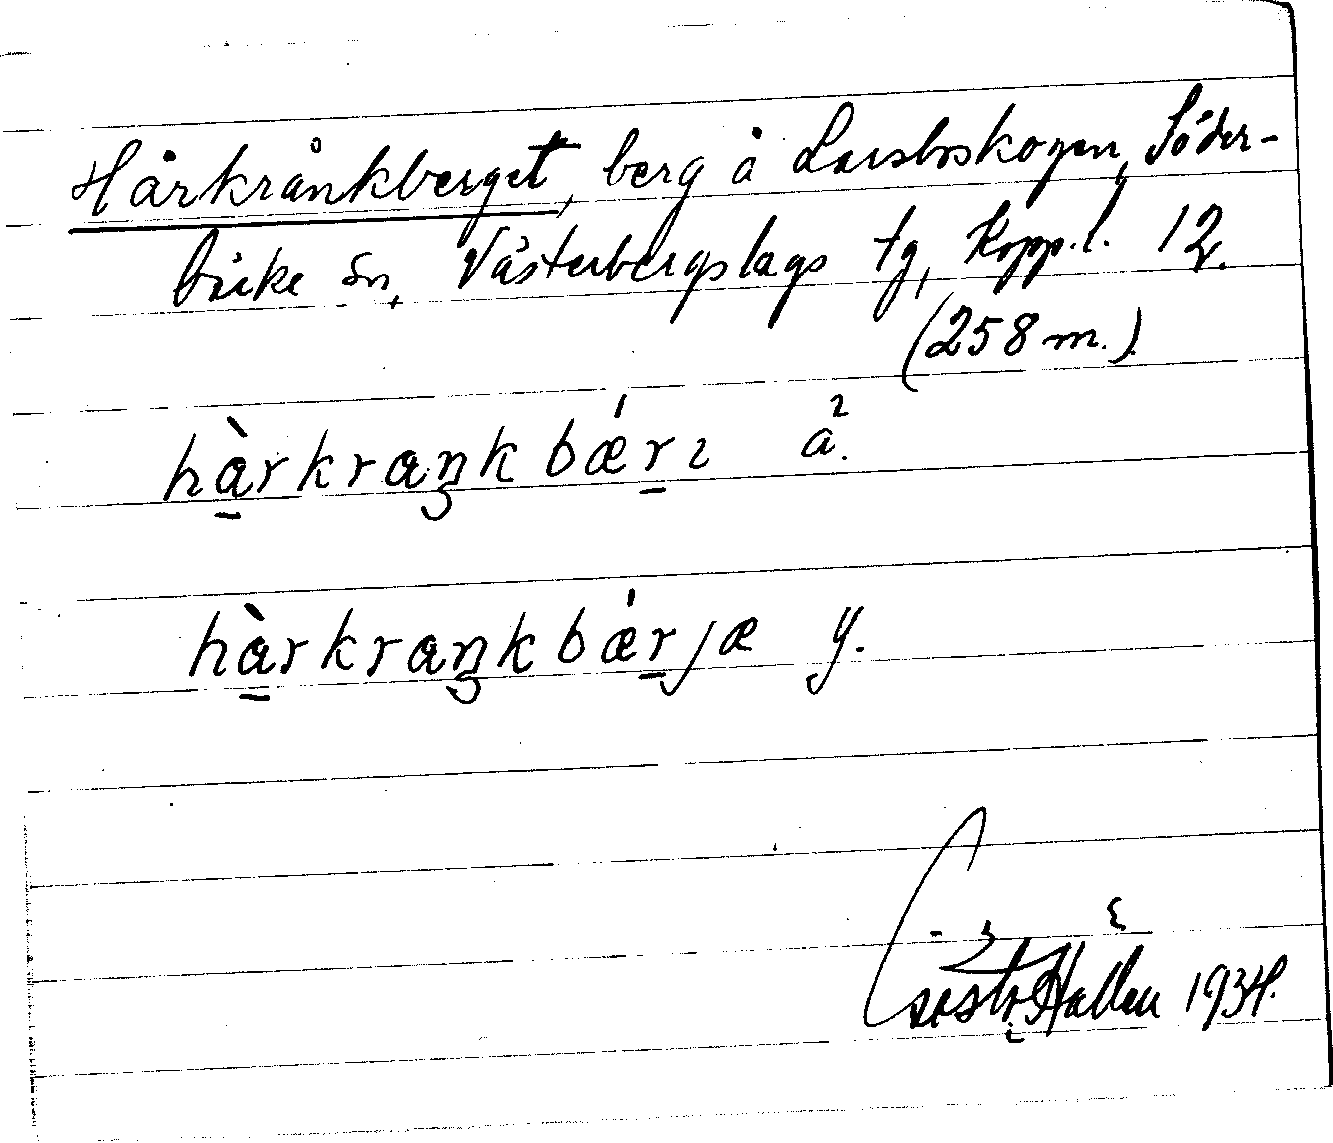 Hårkrånkberget, berg å Larsboskogen, Söder-
bärke sn, Västerbergslags tg, Kopp. l. 12.
(258 m.).
hàrkraŋkbǽrı a².
hàrkraŋkbǽrjæ y.
Gösta Hallen 1934.